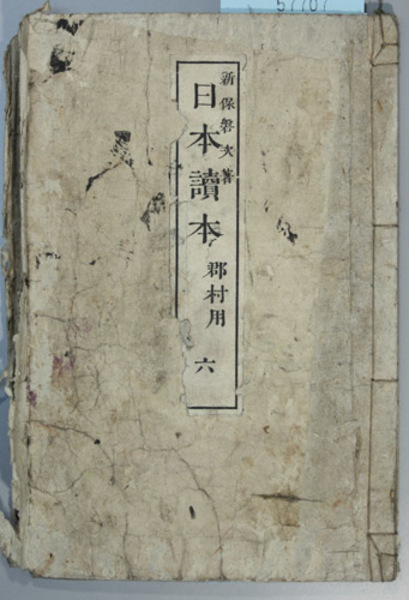 57707
新保磐次著
日本讀本
郡村用
六